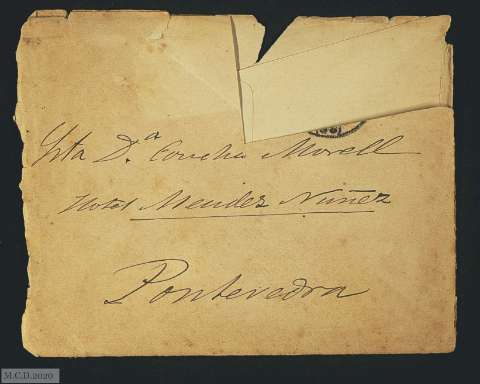 Srta D.ª Concha Morell
Hotel Mendez Nuñez
Pontevedra
M.C.D.2020